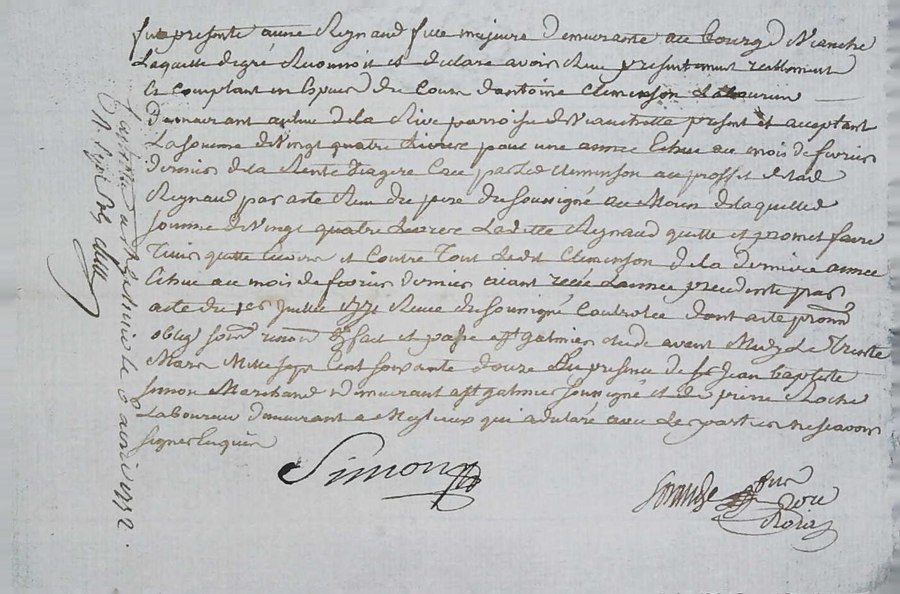 fut presente anne Reynaud fille majeure demeurante au bourg de Veauche
Laquelle de gré Reconnoit et declare avoir Receu presentement reellement
et comptant en Especes du Cours d'antoine Clemenson Laboureur
demeurant au lieu de la Rive parroisse de Veauchette present et acceptant
La somme de Vingt quatre Livres pour une année Echue au mois de fevrier
dernier de la Rente Viagere Créé par led Clemenson au proffit de lad
Reynaud par acte Receu du pere du soussigné au Moien de laquelle
somme de Vingt quatre Livres Laditte Reynaud quitte et promet faire
Tenir quitte Envers et Contre Tout Ledit Clemenson de la derniere année
Echue au mois de fevrier dernier etant la précédente par
acte du 1er Juillet 1771 Receue du soussigné Controlée dont acte prom
oblig soum renon fait et passé a St galmier Etude avant Midy Le Trente
Mars Mille sept Cent soixante douze En presence de Sr Jean Baptiste
Simon Marchand demeurant a St galmier soussigné et de pierre Roche
Laboureur demeurant a Meylieux qui a declaré avec les parties ne scavoir
signer Enquis
Simon
a St galmier le 6 avril 1772